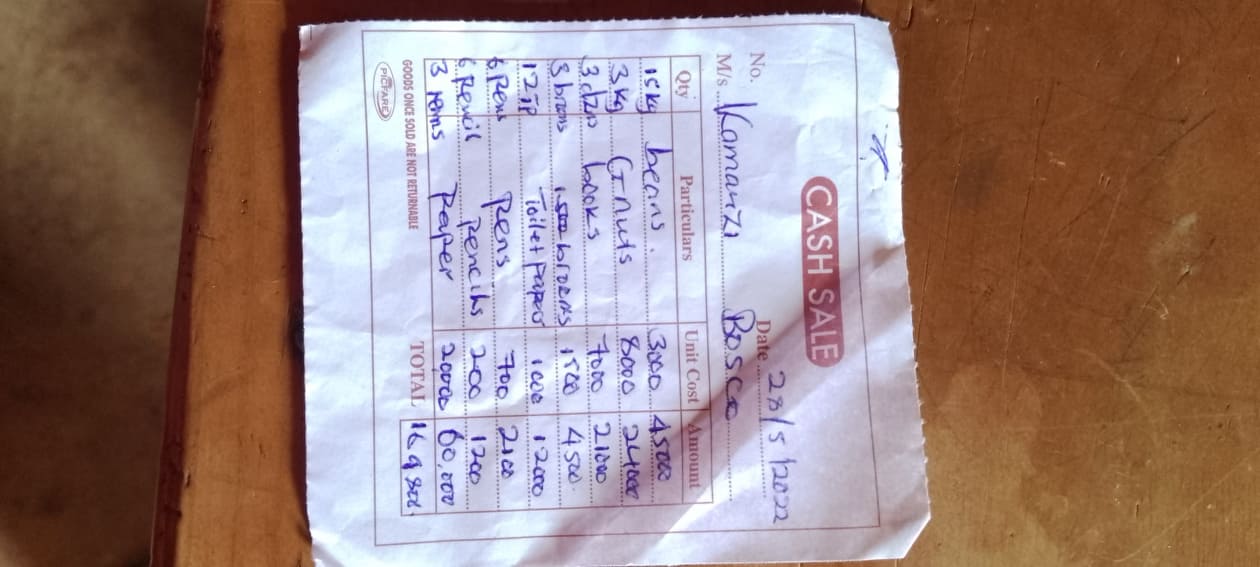 CASH SALE
No. Date 28/5/2022
M/s Kamanzi Bosco
Qty Particulars Unit Cost Amount
15kg beans. 3000 45000
3kg Gnuts 8000 24000
3 dzns books 7000 21000
3 brooms brooms 1500 4500.
12 TP Toilet papers 1000 12000
6 Pens Pens 700 2100
6 Pencil pencils 200 1200
3 rems Paper 20000 60,000
GOODS ONCE SOLD ARE NOT RETURNABLE TOTAL 169800
PICFARE